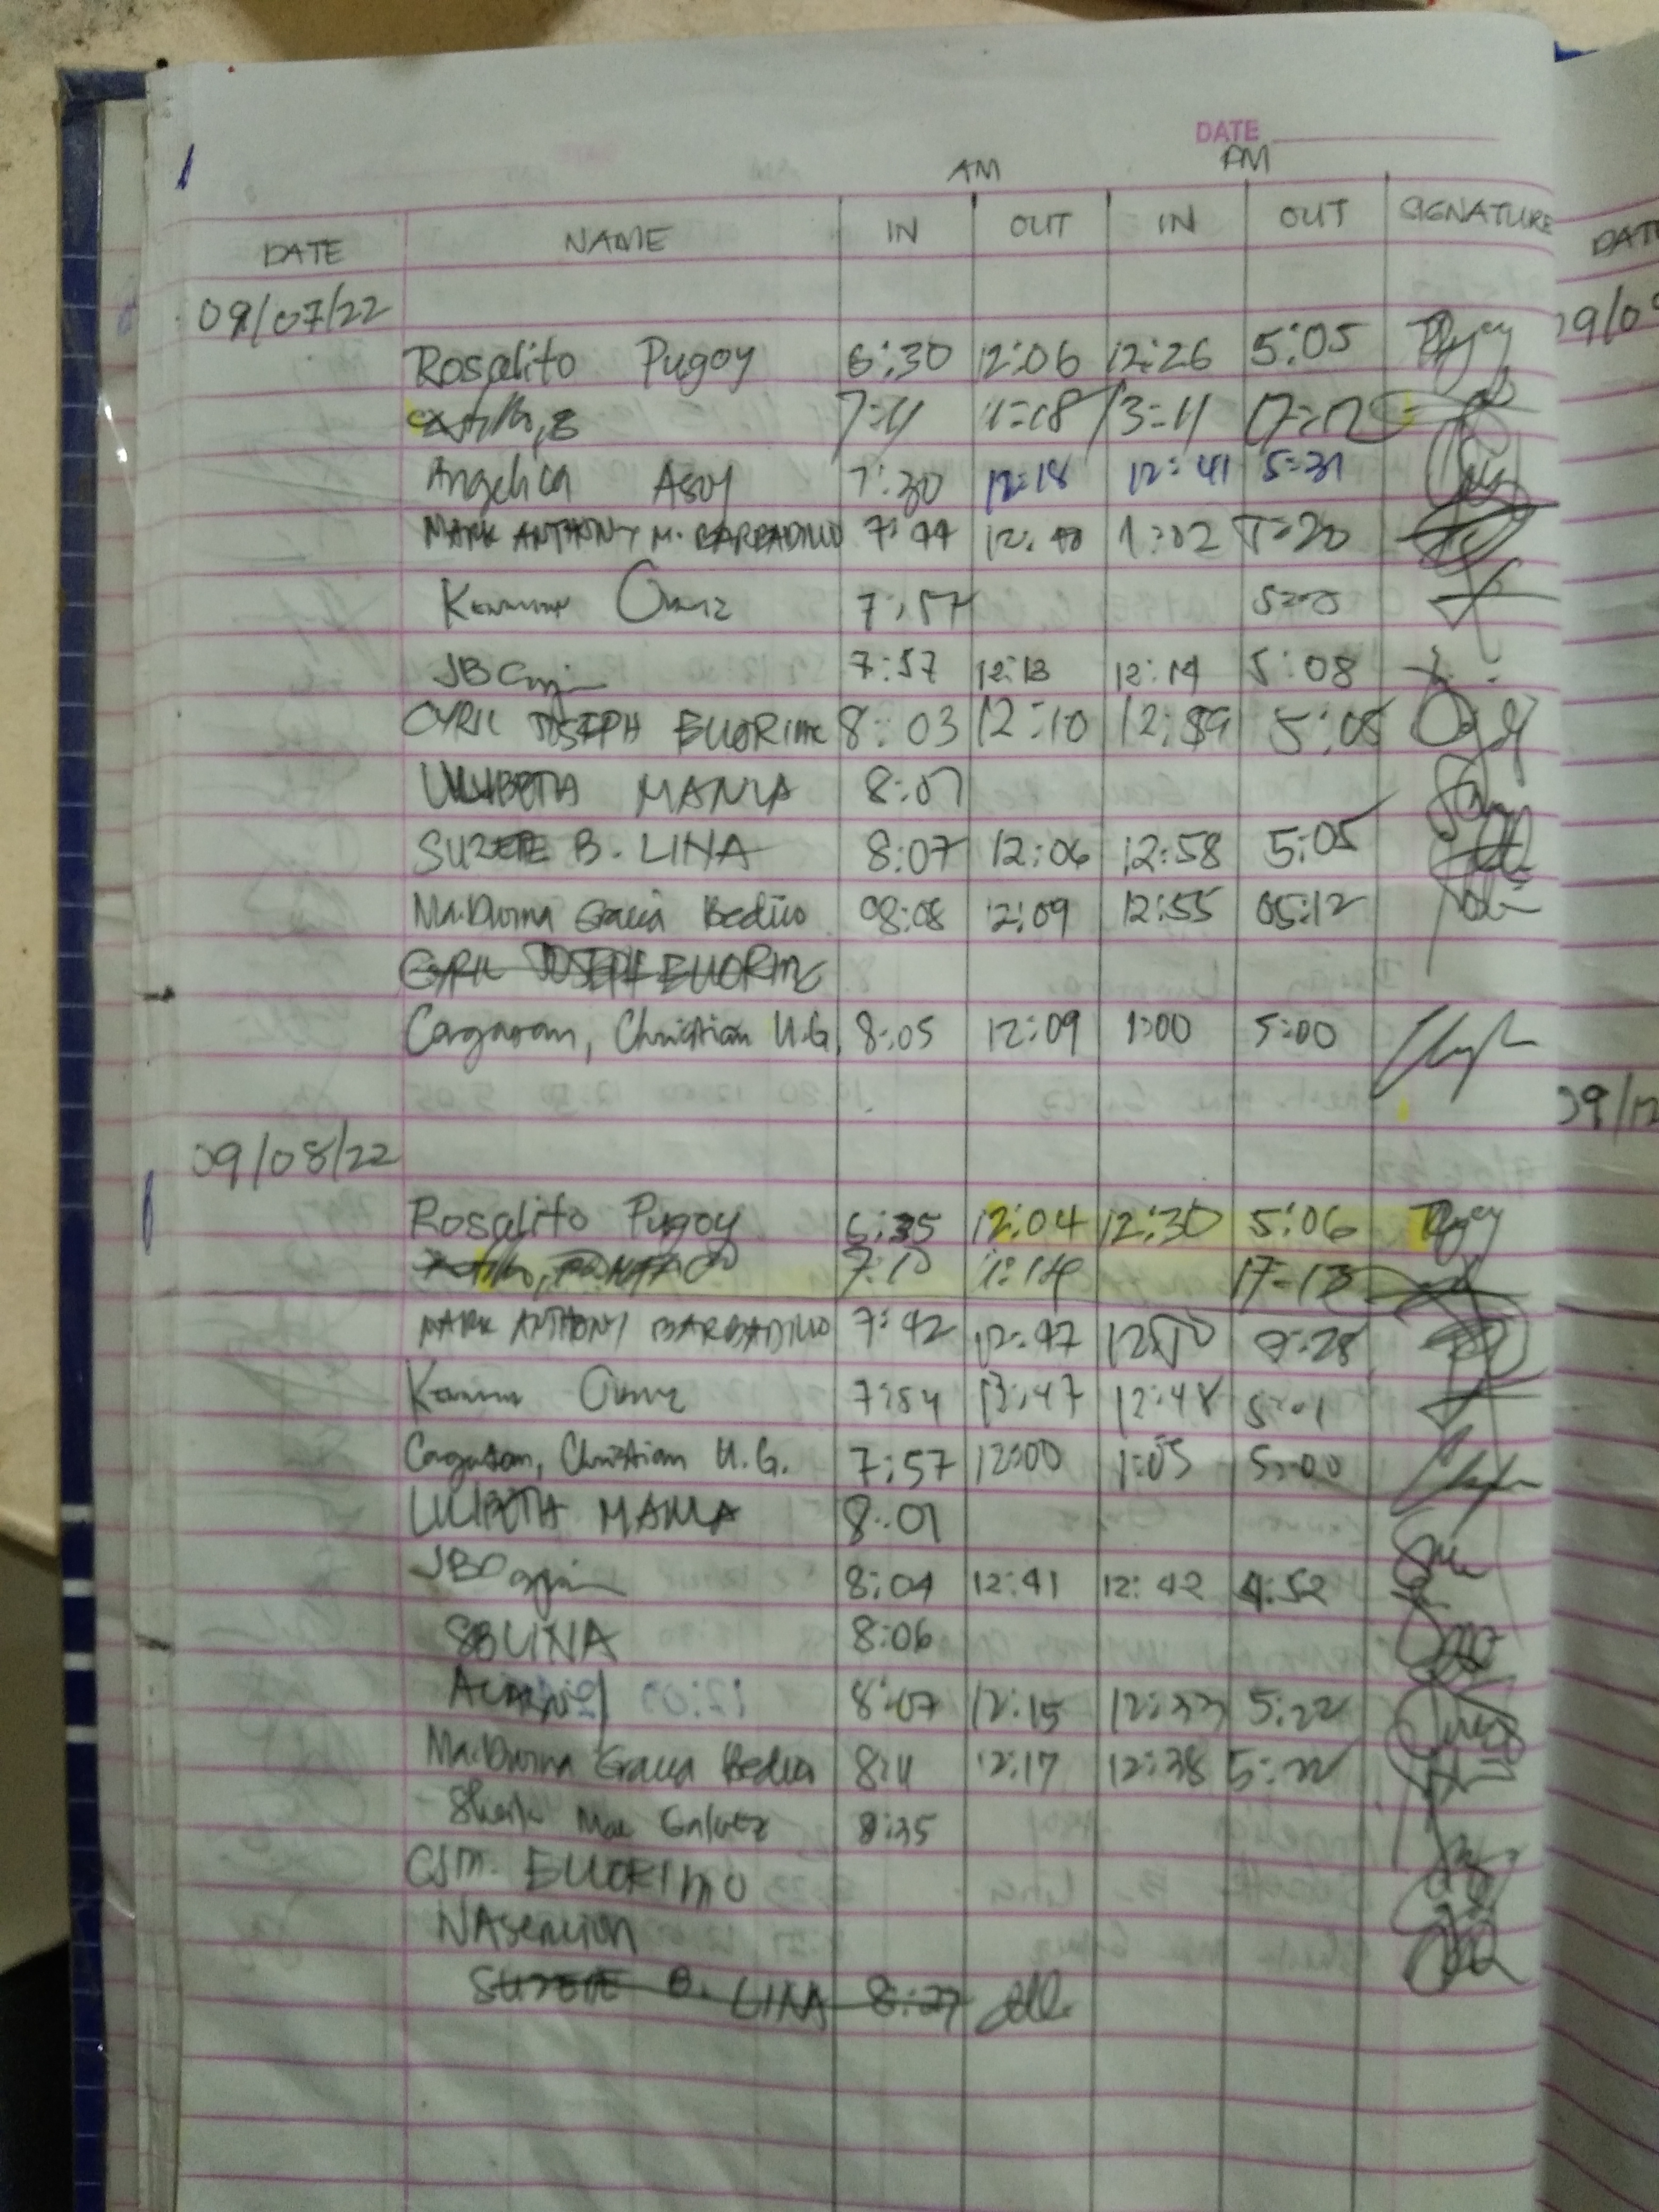 DATE
AM PM
DATE NAME IN OUT IN OUT SIGNATURE
09/07/22
Rosalito Pugoy 6:30 12:06 12:26 5:05
7:11
Angelica Asoy 7:30 12:18 12:41 5:31
MARK ANTHONY M. BARBADILLO 7:44 1:02 5:20
7:57
7:57 12:13 12:14 5:08
CYRIL JOSEPH ELLORIMO 8:03 12:10 12:59 5:05
LILIBETH MANLA 8:07
SUZETTE B. LINA 8:07 12:06 12:58 5:05
Ma. Divina Gracia 08:08 12:09 12:55 05:12
CYRIL JOSEPH ELLORIMO
Cagasan, Christian U.G. 8:05 12:09 1:00 5:00
09/08/22
Rosalito Pugoy 6:35 12:04 12:30 5:06
7:10
MARK ANTHONY BARBADILLO 7:42 12:47 12:50
7:54 12:47 12:48 5:01
Cagasan, Christian U.G. 7:57 12:00 1:05 5:00
LILIBETH MANLA 8:01
8:04 12:41 12:42 4:52
SBLINA 8:06
8:07 12:15 12:33 5:22
Ma. Divina Gracia 8:11 12:17 12:38 5:22
Mae Galvez 8:35
CJM. ELLORIMO
NAsencion
SUZETTE B. LINA 8:27
DATE
09/12